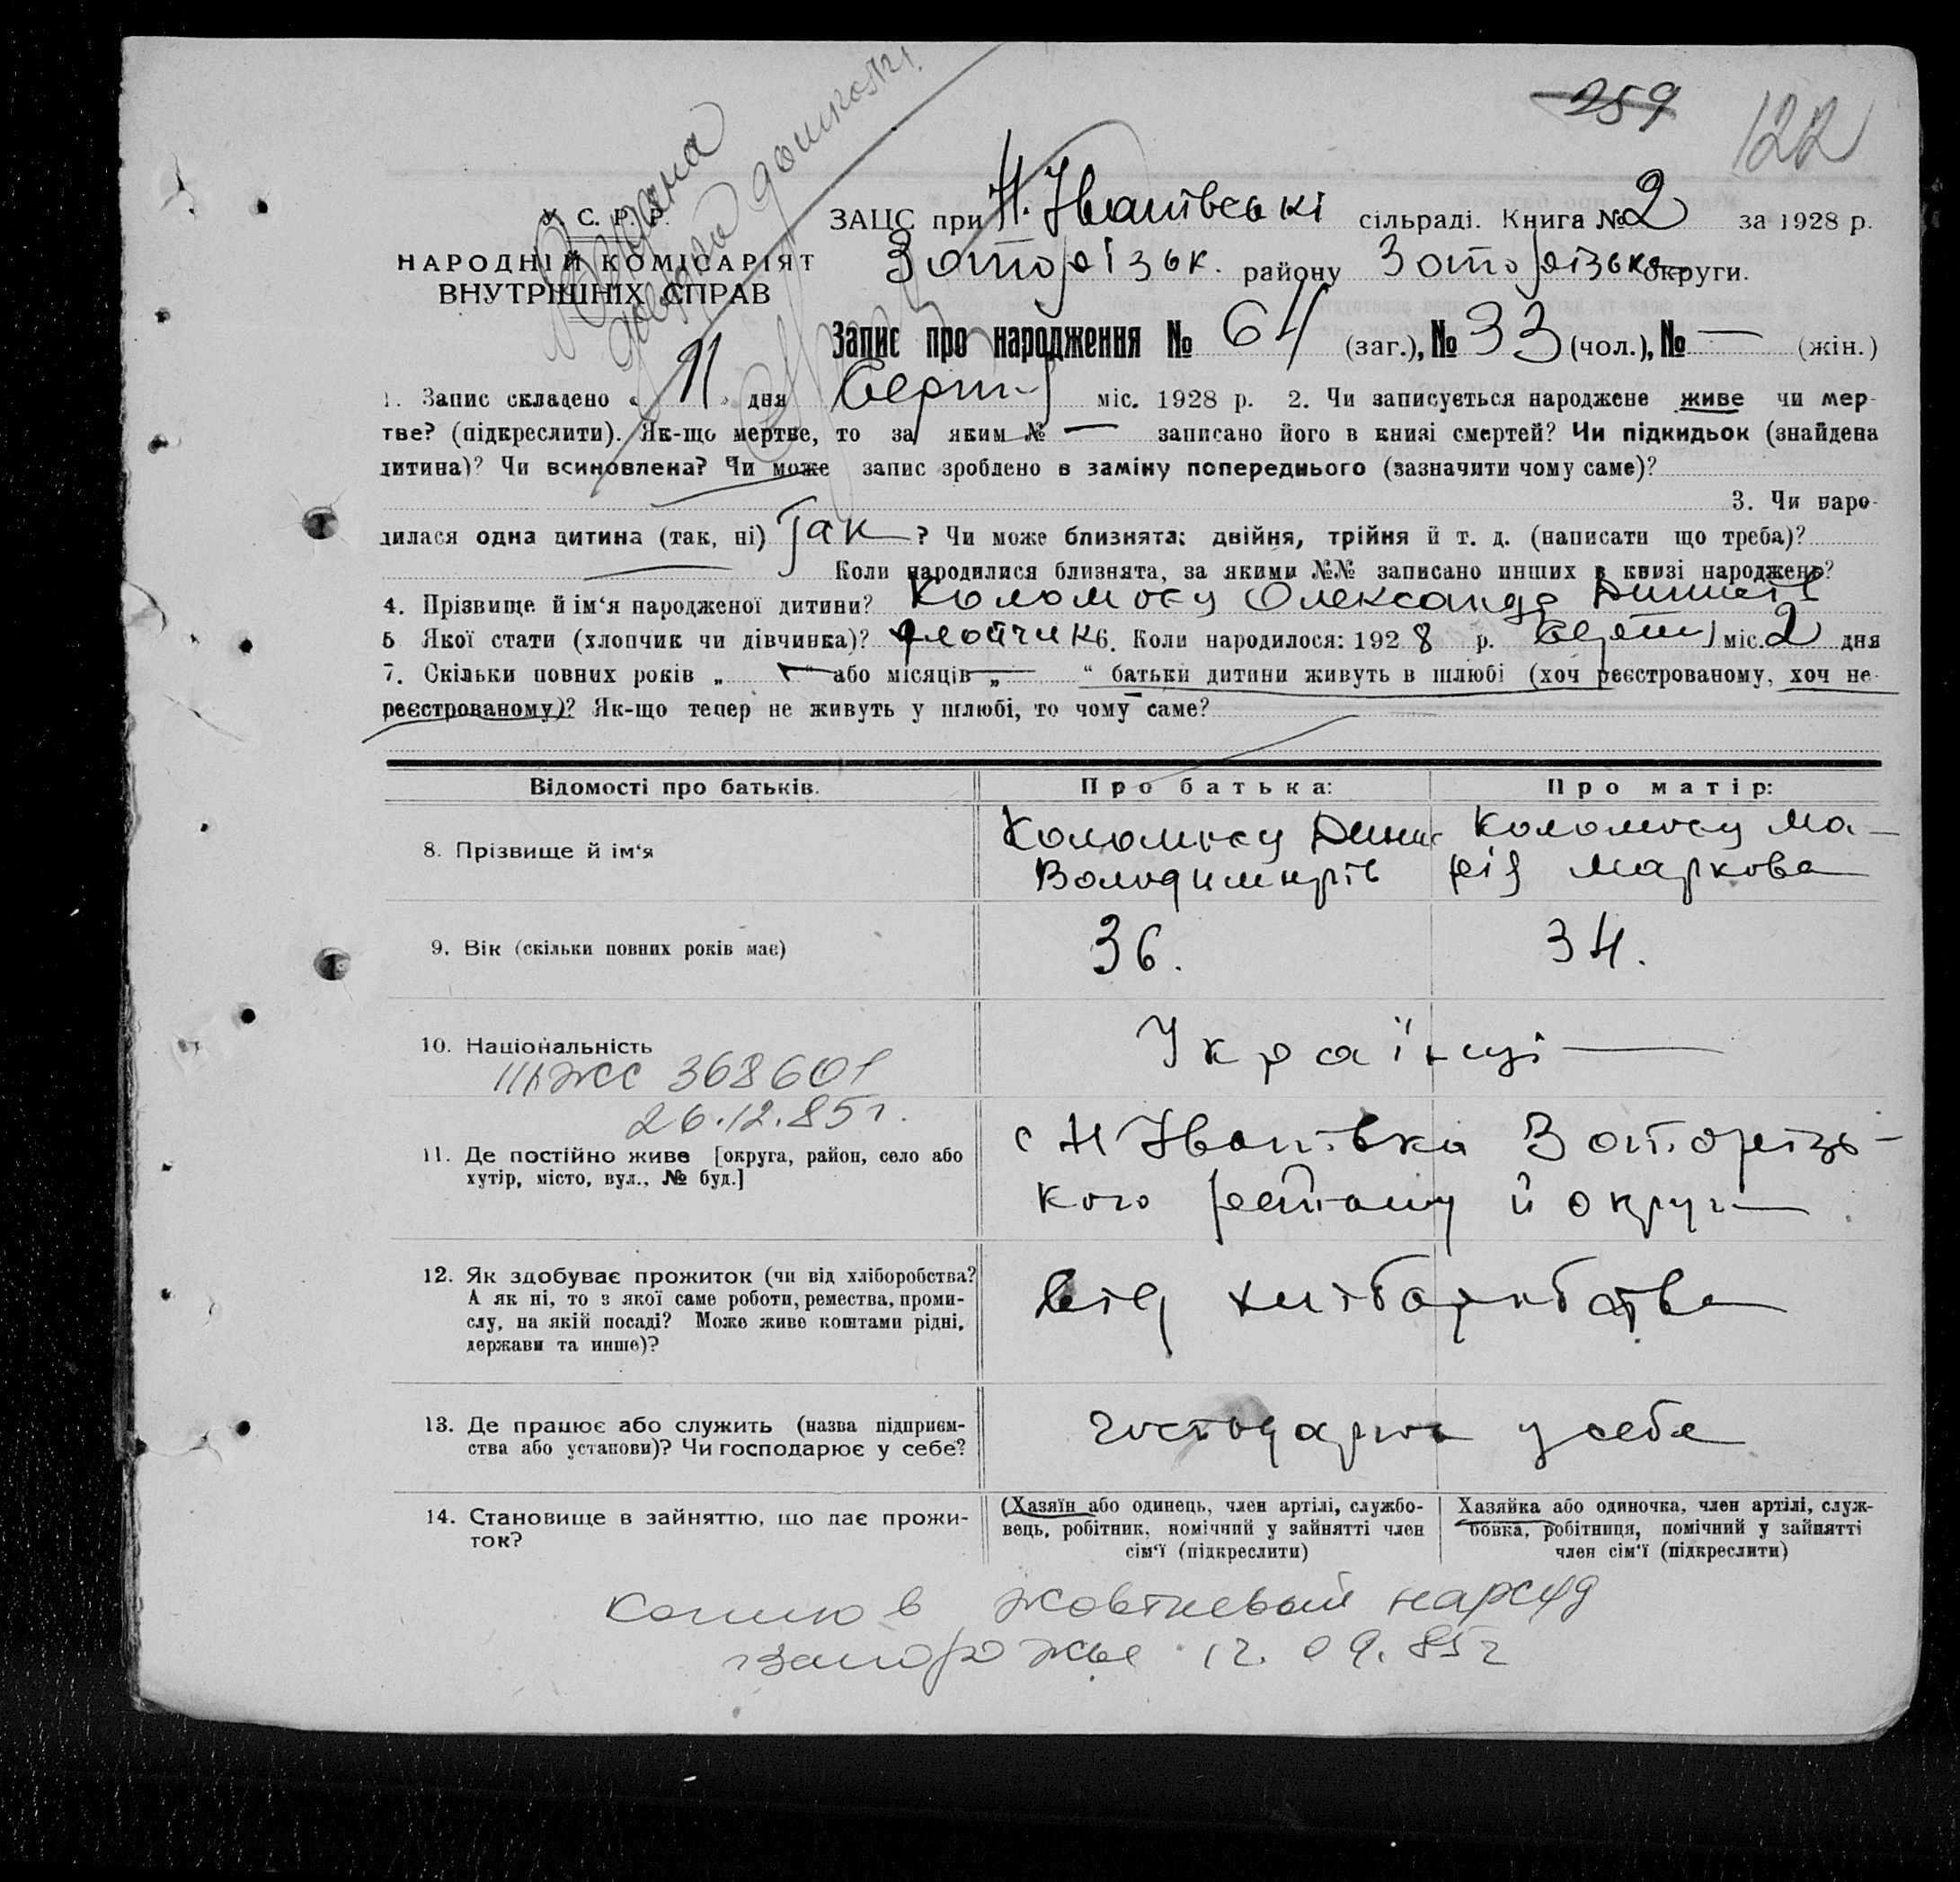 259
122
Видана
довідка
У. С. Р. Р.
НАРОДНІЙ КОМІСАРІЯТ
ВНУТРІШНІХ СПРАВ
ЗАЦС при Н. Іванівські сільраді. Книга № 2 за 1928 р.
Запорізьк. району Запорізьк округи.
Запис про народження № 64 (заг.), № 33 (чол.), № — (жін.)
1. Запис складено « 11 » дня берез міс. 1928 р. 2. Чи записується народжене живе чи мер-
тве? (підкреслити). Як-що мертве, то за яким № — записано його в книзі смертей? Чи підкидьок (знайдена
дитина)? Чи всиновлена? Чи може запис зроблено в заміну попереднього (зазначити чому саме)?
3. Чи наро-
дилася одна дитина (так, ні) Так ? Чи може близнята: двійня, трійня й т. д. (написати що треба)?
Коли народилися близнята, за якими №№ записано инших в книзі народжень?
4. Прізвище й ім‘я народженої дитини? Коломоєц Олександр Денисів
5 Якої стати (хлопчик чи дівчинка)? хлопчик 6. Коли народилося: 1928 р. берез міс. 2 дня
7. Скільки повних років „ — “ або місяців „ — “ батьки дитини живуть в шлюбі (хоч реєстрованому, хоч не-
реєстрованому)? Як-що тепер не живуть у шлюбі, то чому саме?
Відомості про батьків. Про батька: Про матір:
8. Прізвище й ім‘я Коломоєц Денис Коломоєц Ма-
Володимирів рія Маркова
9. Вік (скільки повних років має) 36. 34.
10. Національність Українці
ІІІ ЖС 368601
26.12.85 г.
11. Де постійно живе [округа, район, село або
хутір, місто, вул., № буд.]
с Н Іванівка Запорізь-
кого району й округи
12. Як здобуває прожиток (чи від хліборобства?
А як ні, то з якої саме роботи, ремества, проми-
слу, на якій посаді? Може живе коштами рідні,
держави та инше)?
від хліборобства
13. Де працює або служить (назва підприєм-
ства або установи)? Чи господарює у себе?
господарює у себе
14. Становище в зайняттю, що дає прожи-
ток?
(Хазяїн або одинець, член артілі, службо-
вець, робітник, помічний у зайнятті член
сім‘ї (підкреслити)
Хазяйка або одиночка, член артілі, служ-
бовка, робітниця, помічний у зайнятті
член сім‘ї (підкреслити)
копию в жовтневый нарсуд
запорожье 12.09.85 г